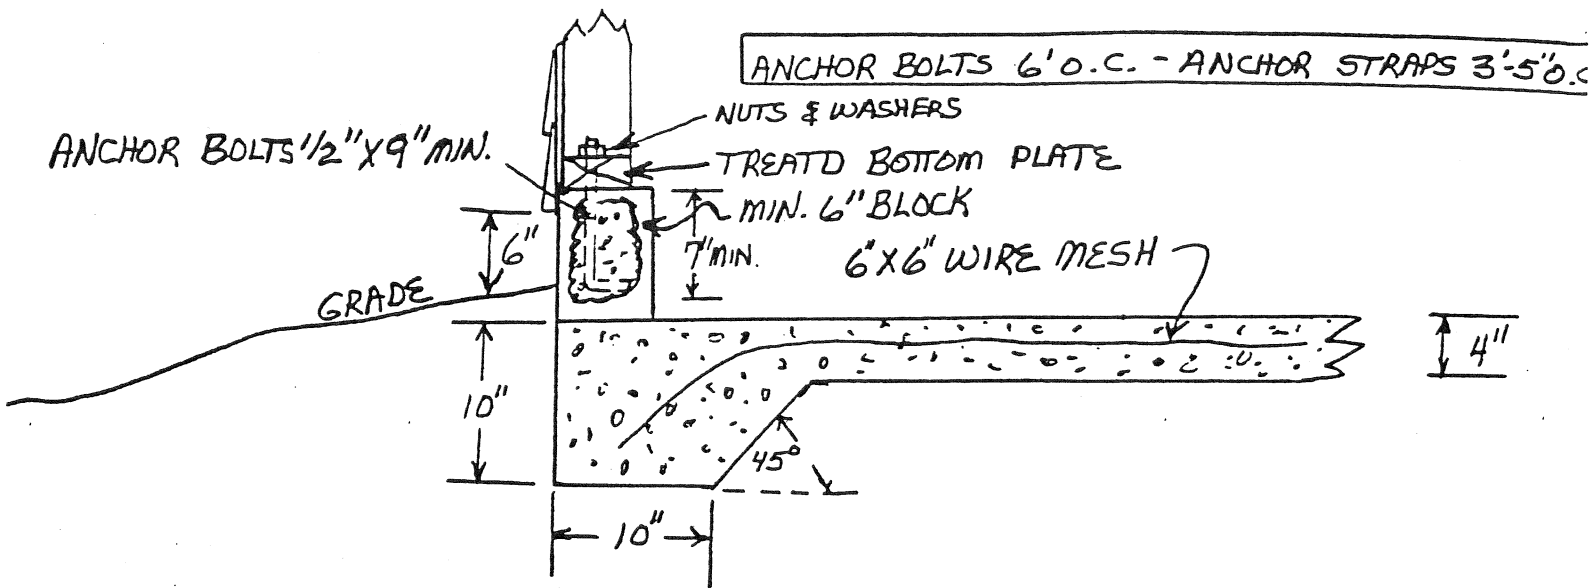 ANCHOR BOLTS 6' O.C. - ANCHOR STRAPS 3'-5" O.C
NUTS & WASHERS
ANCHOR BOLTS 1/2" X 9" MIN.
TREATD BOTTOM PLATE
MIN. 6" BLOCK
6"
7" MIN.
6" X 6" WIRE MESH
GRADE
4"
10"
45°
10"